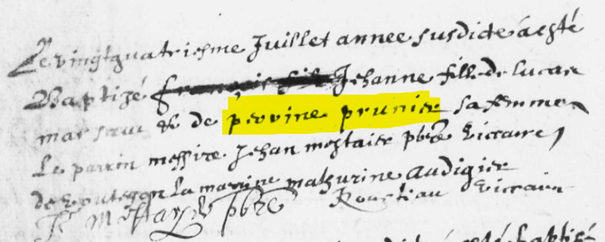 Le vingtquatriesme Juillet annee susdicte a esté
Baptizé françois filz Jehanne fille de lucas
et de pervine prunier sa femme
Le parrin messire Jehan mestaier pbre viccaire
de la marine mathurine audigier
viccaire